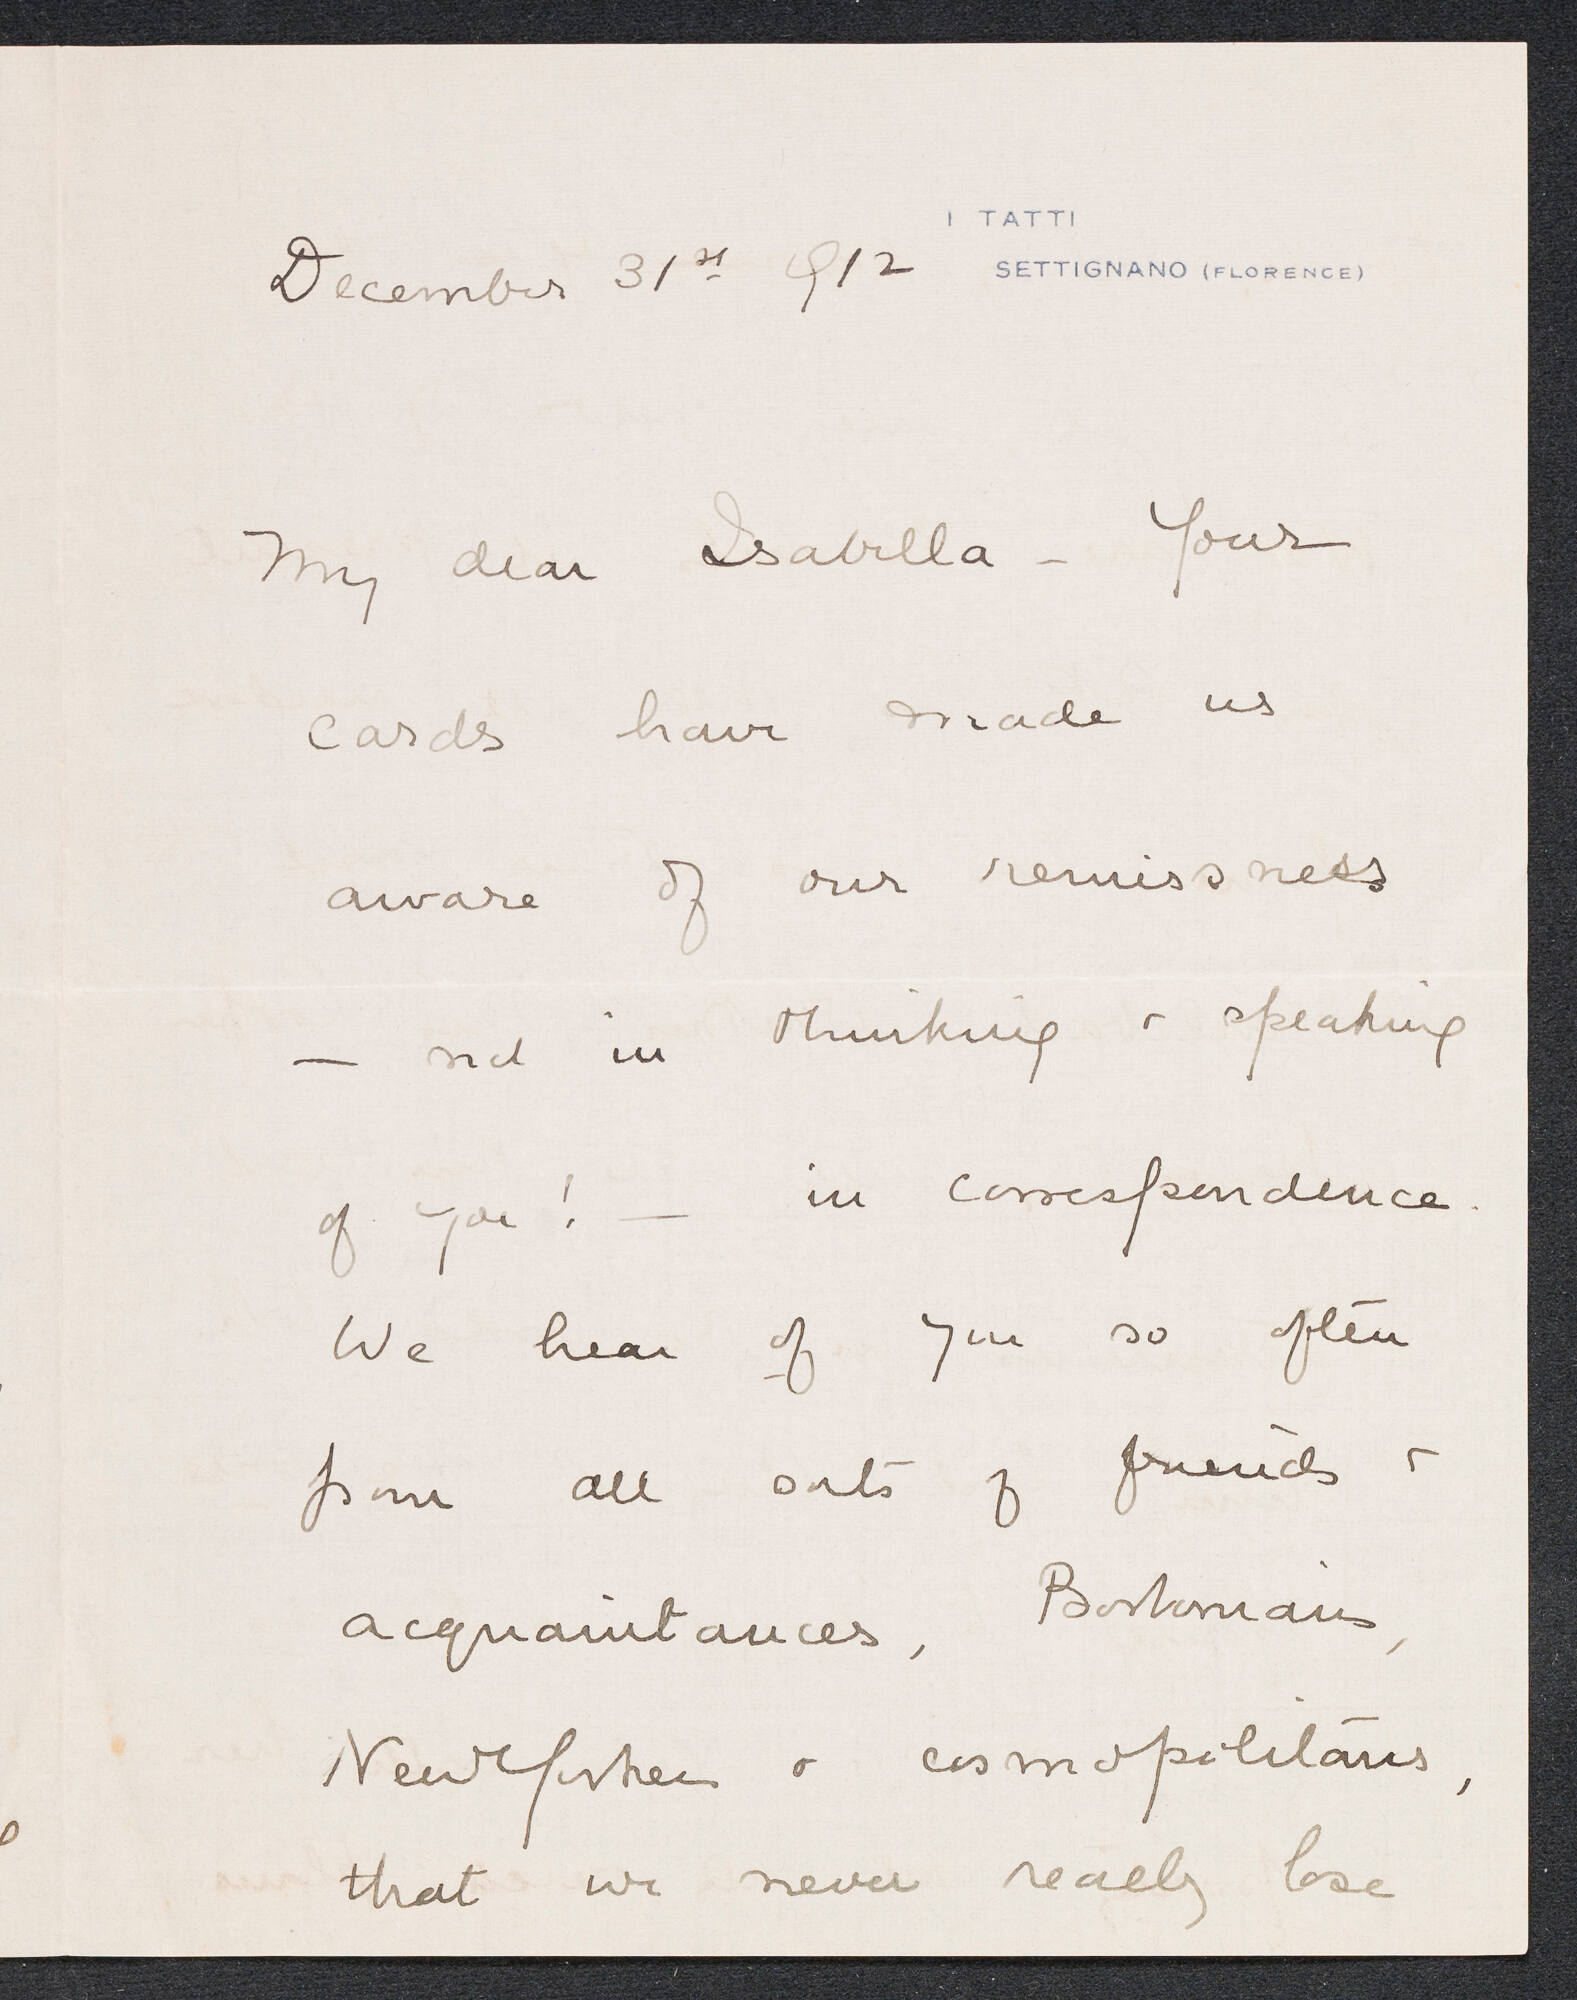 I TATTI
SETTIGNANO (FLORENCE)
December 31st 1912
My dear Isabella – Your
cards have made us
aware of our remissness
— not in thinking & speaking
of you! — in correspondence.
We hear of you so often
from all sorts of friends &
acquaintances, Bostonians,
NewYorkers & cosmopolitans,
that we never really lose